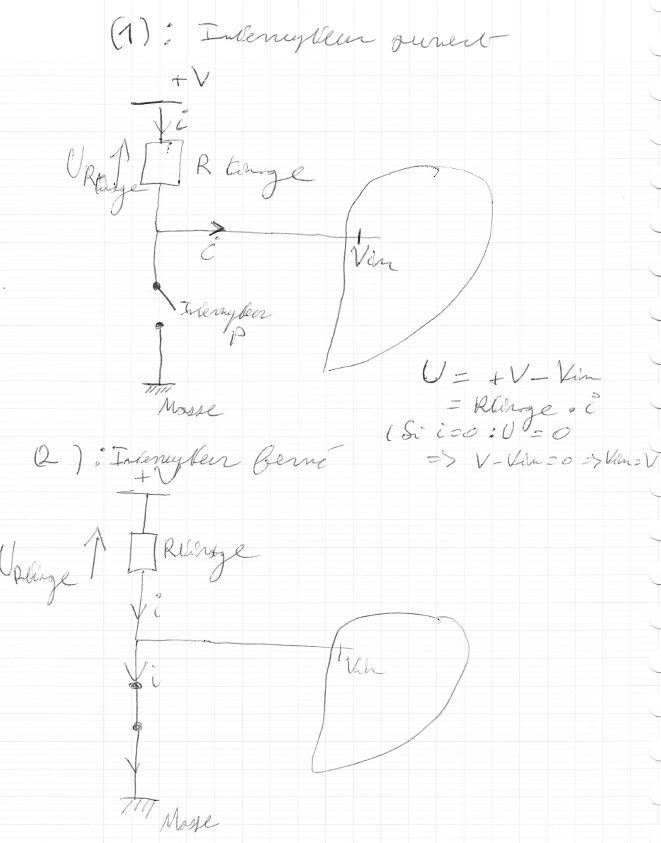 (1) : Interrupteur ouvert
+V
i
URtirage
R tirage
i
Vin
Interrupteur
P
Masse
U = +V - Vin
= Rtirage . i
(Si i=0 : U = 0
=> V-Vin=0 => Vin=V
2) : Interrupteur fermé
+V
URtirage
Rtirage
i
i
Vin
Masse